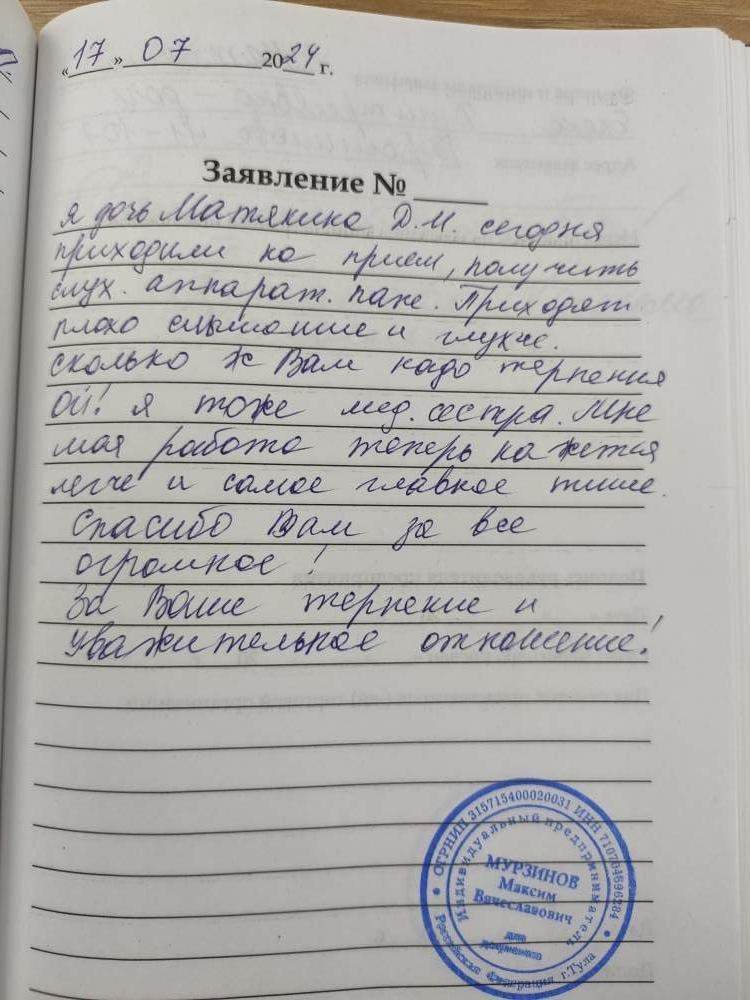 «17» 07 2024 г.
Заявление №
я дочь Матякина Д.М. сегодня
приходили на прием, получить
слух. аппарат. папе. Приходят
плохо слышащие и глухие.
сколько ж Вам надо терпения
ОЙ! я тоже мед. сестра. Мне
моя работа теперь кажется
легче и самое главное тише.
Спасибо Вам за все
огромное!
За Ваше терпение и
уважительное отношение!
ОГРНИП 315715400020031 ИНН 710704696284
Индивидуальный предприниматель
МУРЗИНОВ
Максим
Вячеславович
для
документов
Российская Федерация г.Тула